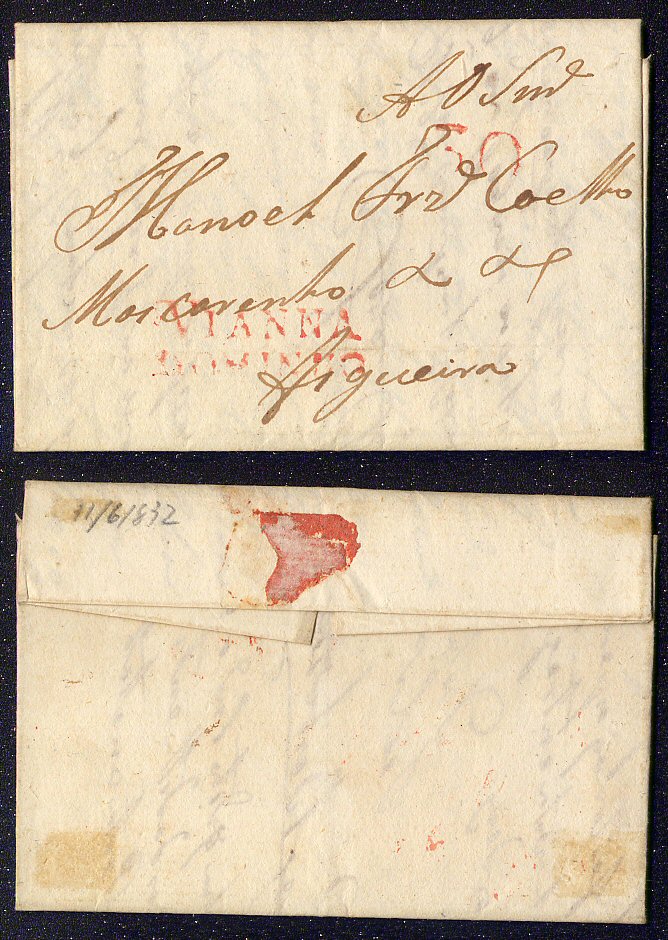 A O Snrͩ
50
Manoel Frz͂ Coelho
Mascarenho & &
VIANNA
DOMINHO
Figueira
11/6/832